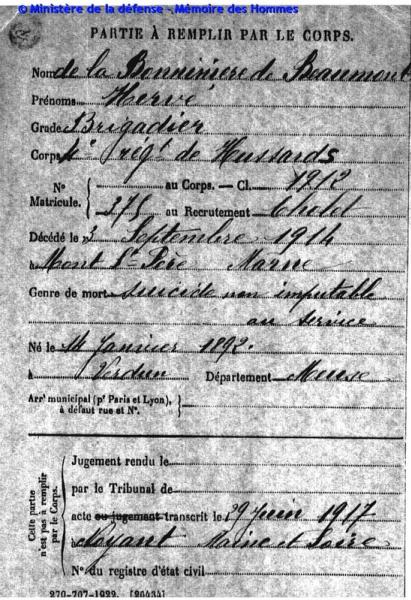 © Ministère de la défense - Mémoire des Hommes
PARTIE À REMPLIR PAR LE CORPS.
Nom de la Bonninière de Beaumont
Prénoms Hervé
Grade Brigadier
Corps régt de Hussards
N° Matricule. au Corps. — Cl. 1912
375 au Recrutement Cholet
Décédé le 3 Septembre 1914
à Mont St Père Marne
Genre de mort suicide non imputable
au service
Né le 14 Janvier 1892.
à Verdun Département Meuse
Arrt municipal (pr Paris et Lyon), à défaut rue et N°.
Cette partie n'est pas à remplir par le Corps.
Jugement rendu le
par le Tribunal de
acte ou jugement transcrit le 29 Juin 1917
Maine et Loire
N° du registre d'état civil
270-707-1922. [26434]